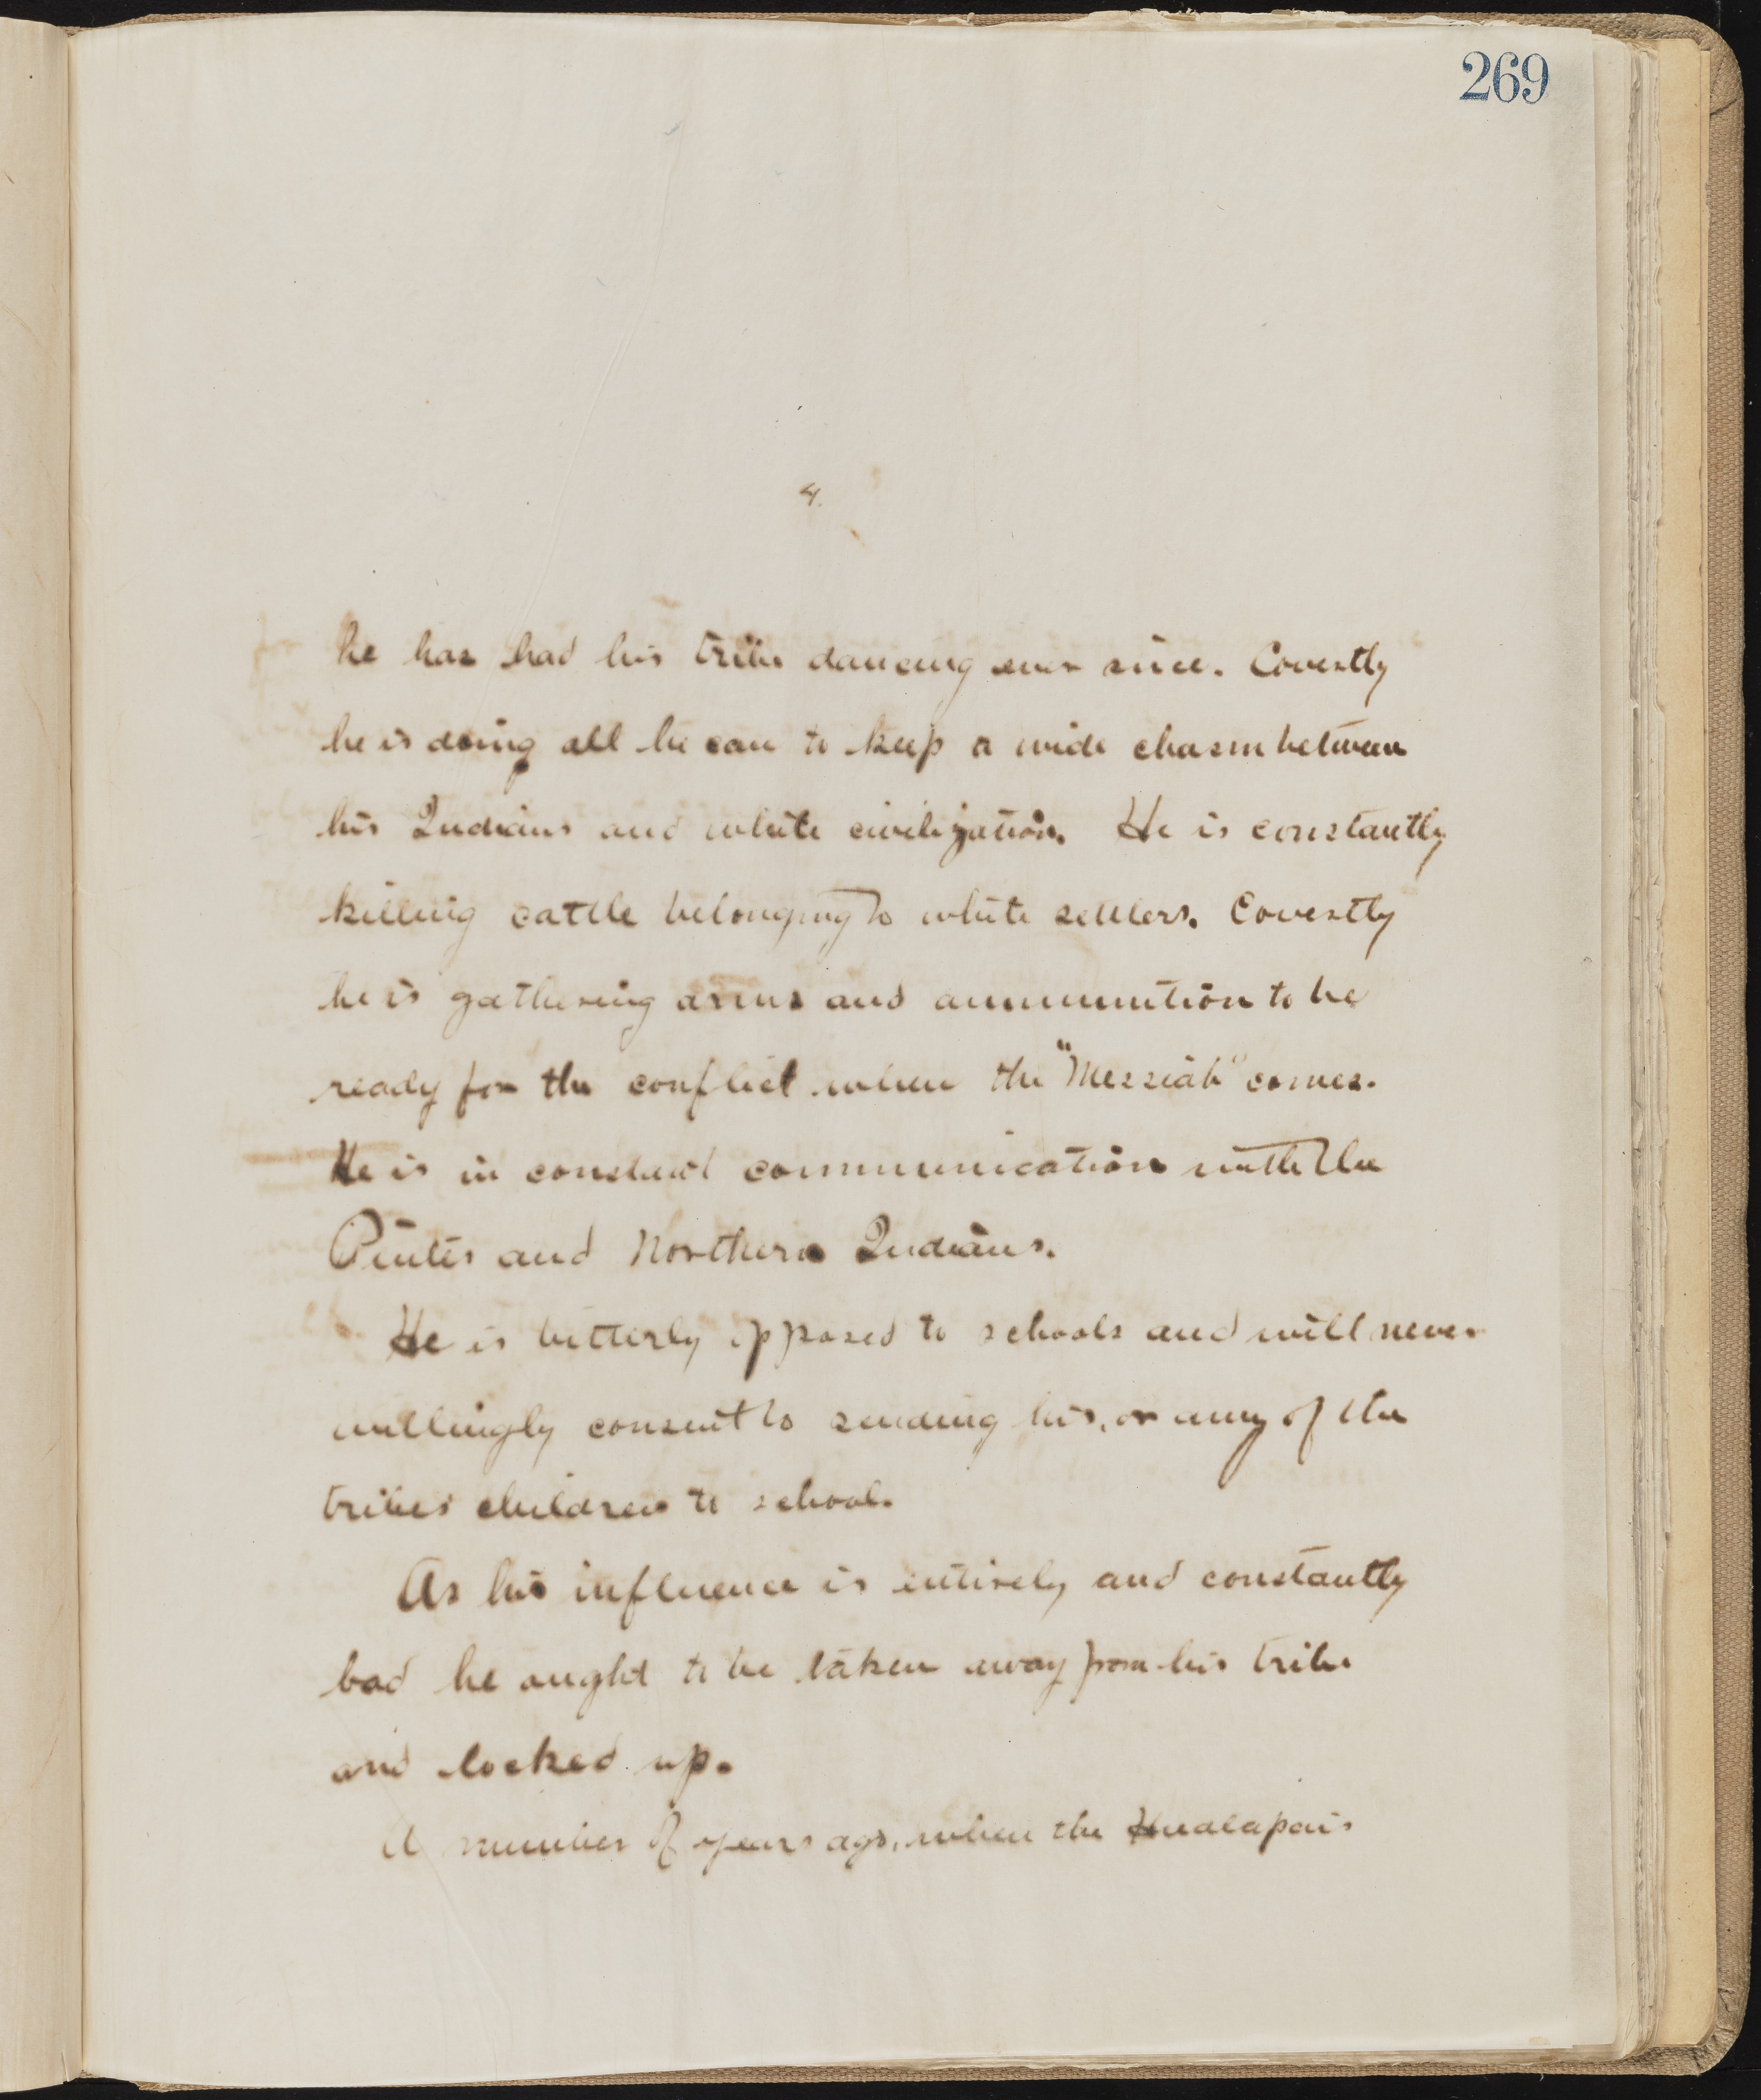 269
4.
he has had his tribe dancing ever since. Covertly
he is doing all he can to keep a wide chasm between
his Indians and white civilization. He is constantly
killing cattle belonging to white settlers. Covertly
he is gathering arms and ammunition to be
ready for the conflict when the "Messiah" comes.
He is in constant communication with the
Piutes and Northern Indians.
He is bitterly opposed to schools and will never
willingly consent to sending his, or any of the
tribes children to school.
As his influence is entirely and constantly
bad he ought to be taken away from his tribe
and locked up.
A number of years ago, when the Hualapais